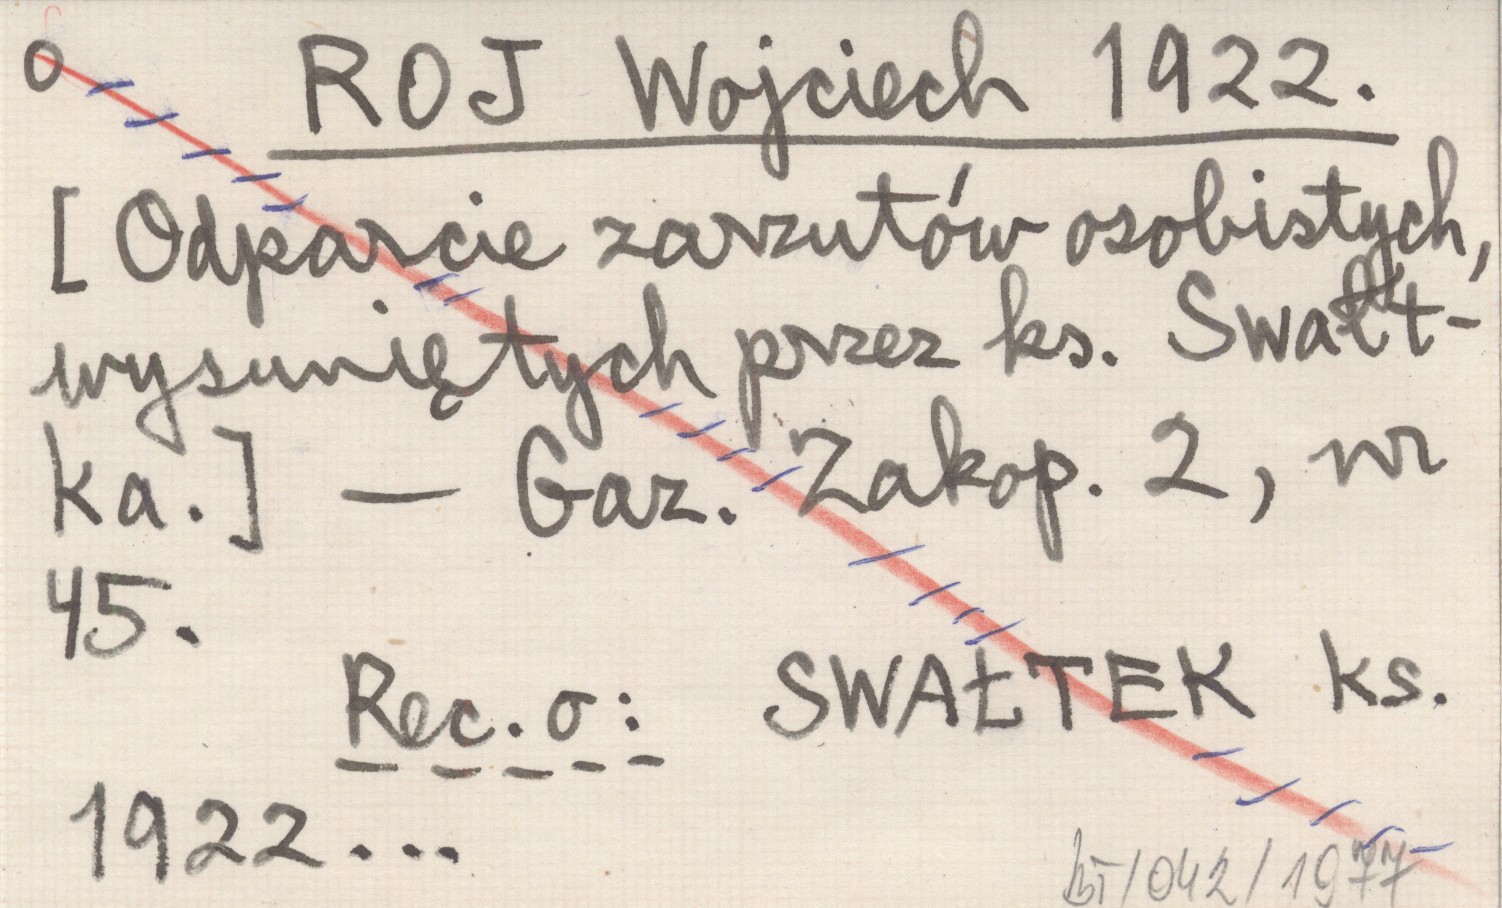 O ROJ Wojciech 1922.
[Odparcie zarzutów osobistych,
wysuniętych przez ks. Swałt-
ka.] — Gaz. Zakop. 2, nr
45.
Rec. o: SWAŁTEK ks.
1922...
/042/1977